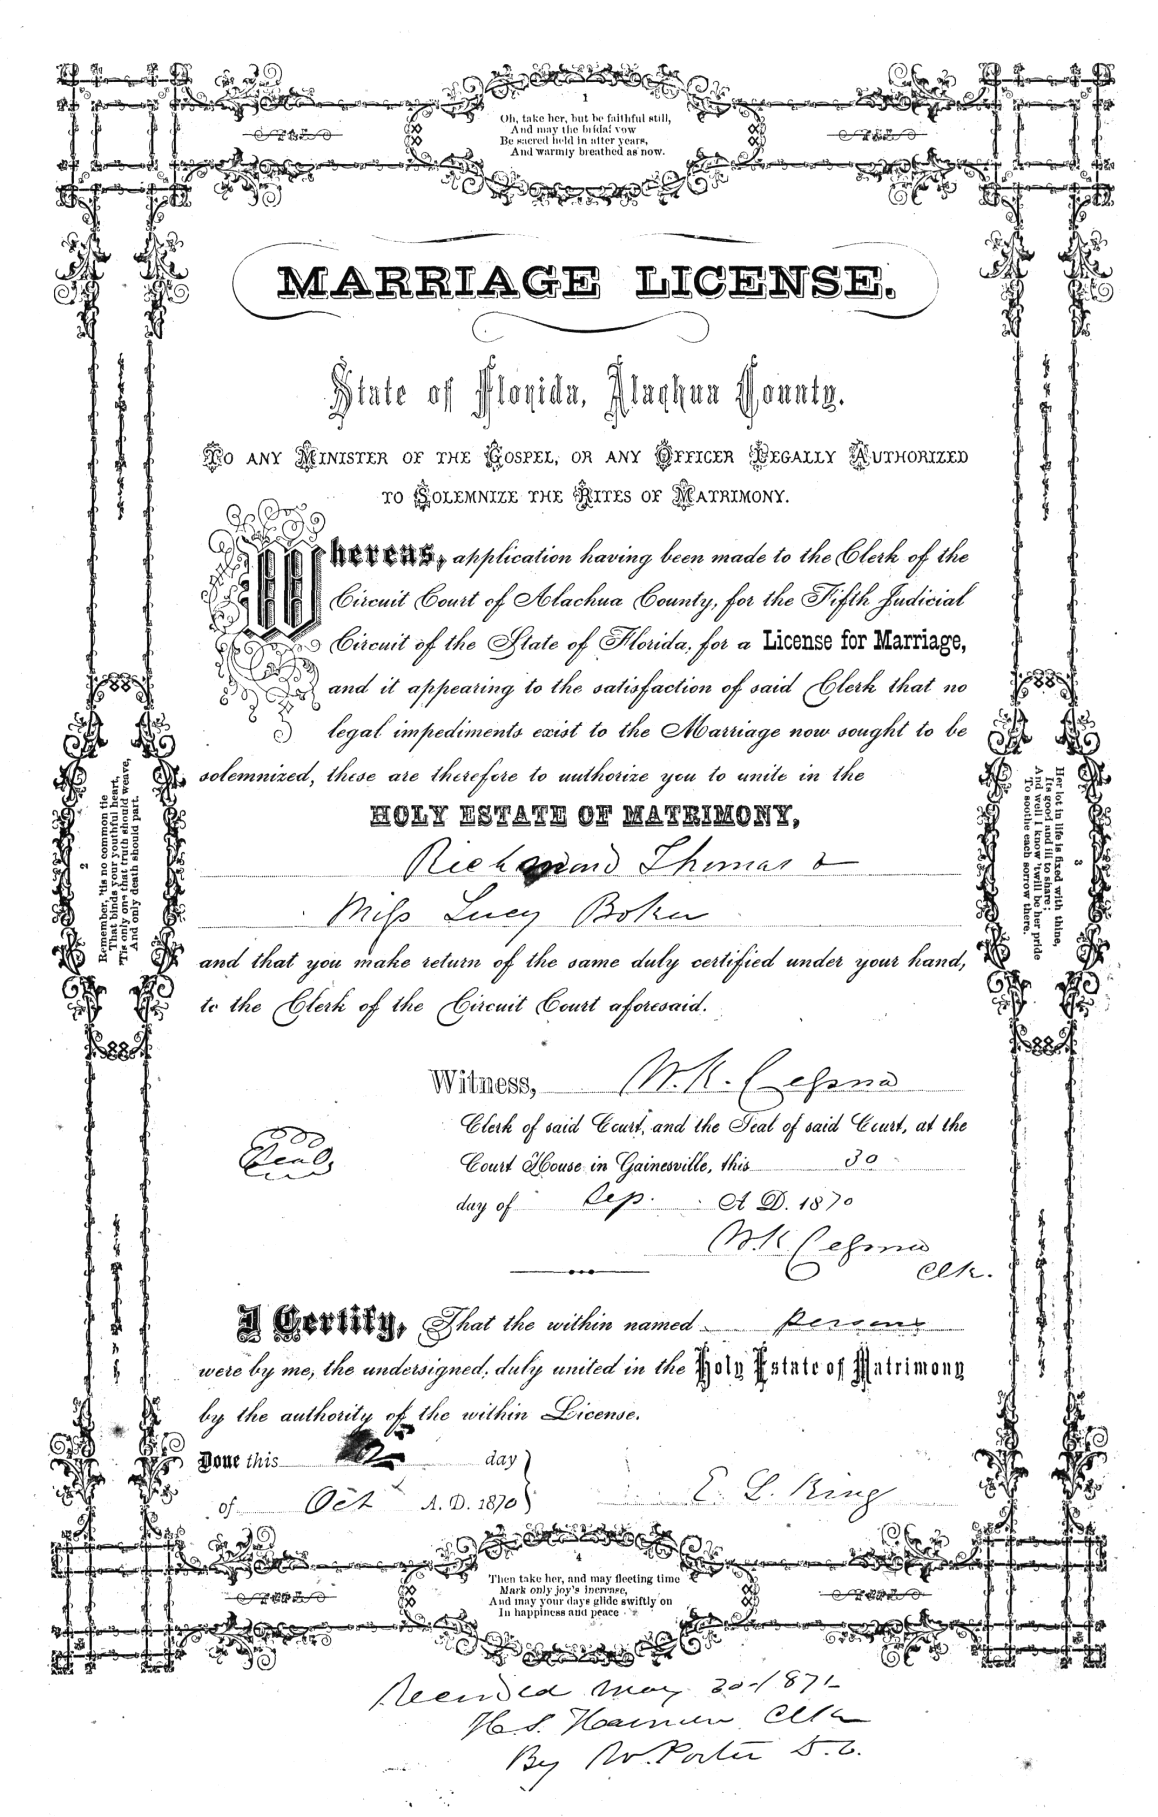 1
Oh, take her, but be faithful still,
And may the bridal vow
Be sacred held in after years,
And warmly breathed as now.
MARRIAGE LICENSE.
State of Florida, Alachua County.
TO ANY MINISTER OF THE GOSPEL, OR ANY OFFICER LEGALLY AUTHORIZED
TO SOLEMNIZE THE RITES OF MATRIMONY.
Whereas, application having been made to the Clerk of the
Circuit Court of Alachua County, for the Fifth Judicial
Circuit of the State of Florida, for a License for Marriage,
and it appearing to the satisfaction of said Clerk that no
legal impediments exist to the Marriage now sought to be
solemnized, these are therefore to authorize you to unite in the
HOLY ESTATE OF MATRIMONY,
Richmond Thomas &
Miss Lucy Boker
and that you make return of the same duly certified under your hand,
to the Clerk of the Circuit Court aforesaid.
Witness, W. K. Cessna
Clerk of said Court, and the Seal of said Court, at the
Seal
Court House in Gainesville, this 30
day of Sep. A. D. 1870
W. K. Cessna
Clk.
I Certify, That the within named persons
were by me, the undersigned, duly united in the Holy Estate of Matrimony
by the authority of the within License.
Done this 2 day
of Oct A. D. 1870
E. L. King
2
Remember, 'tis no common tie
That binds your youthful heart,
'Tis only one that truth should weave,
And only death should part.
3
Her lot in life is fixed with thine,
Its good and ill to share;
And well I know 'twill be her pride
To soothe each sorrow there.
4
Then take her, and may fleeting time
Mark only joy's increase,
And may your days glide swiftly on
In happiness and peace
Recorded May 30 187
H. S. Harmon Clk
By W. Porter D. C.